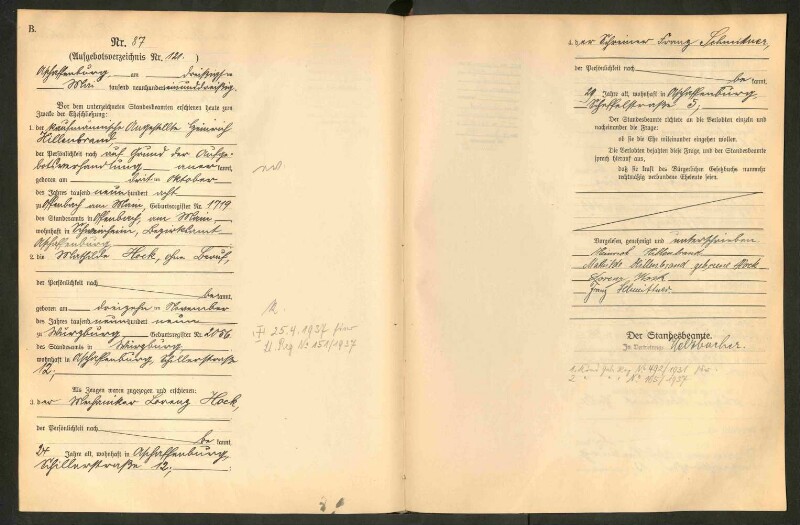 B.
Nr. 87
(Aufgebotsverzeichnis Nr. 121. )
Aschaffenburg am dreißigsten
Mai tausend neunhunderteinunddreißig.
Vor dem unterzeichneten Standesbeamten erschienen heute zum
Zwecke der Eheschließung:
1. der kaufmännische Angestellte Heinrich
Hillenbrand
der Persönlichkeit nach auf Grund der Aufge-
botsverhandlung anerkannt,
geboren am dritten Oktober
des Jahres tausend neunhundert acht
zu Offenbach am Main, Geburtsregister Nr. 1719
des Standesamts in Offenbach am Main,
wohnhaft in Schweinheim, Bezirksamt
Aschaffenburg
2. die Mathilde Hock, ohne Beruf,
der Persönlichkeit nach
bekannt,
geboren am dreizehnten November
des Jahres tausend neunhundert neun
zu Würzburg, Geburtsregister Nr. 2056
des Standesamts in Würzburg
wohnhaft in Aschaffenburg, Schillerstraße
12;
Als Zeugen waren zugezogen und erschienen:
3. der Mechaniker Lorenz Hock,
der Persönlichkeit nach
bekannt,
24 Jahre alt, wohnhaft in Aschaffenburg,
Schillerstraße 12;
25.4.1937
Reg No 151/1937
4. der Schreiner Franz
der Persönlichkeit nach
bekannt,
29 Jahre alt, wohnhaft in Aschaffenburg,
Scheffelstraße 5;
Der Standesbeamte richtete an die Verlobten einzeln und
nacheinander die Frage:
ob sie die Ehe miteinander eingehen wollen.
Die Verlobten bejahten diese Frage, und der Standesbeamte
sprach hierauf aus,
daß sie kraft des Bürgerlichen Gesetzbuchs nunmehr
rechtmäßig verbundene Eheleute seien.
Vorgelesen, genehmigt und unterschrieben
Heinrich Hillenbrand
Mathilde Hillenbrand geborene Hock
Lorenz Hock
Franz
Der Standesbeamte.
In Vertretung: Holzbacher.
1. Geb. Reg No 492/1931
2 " " " No 165/1937